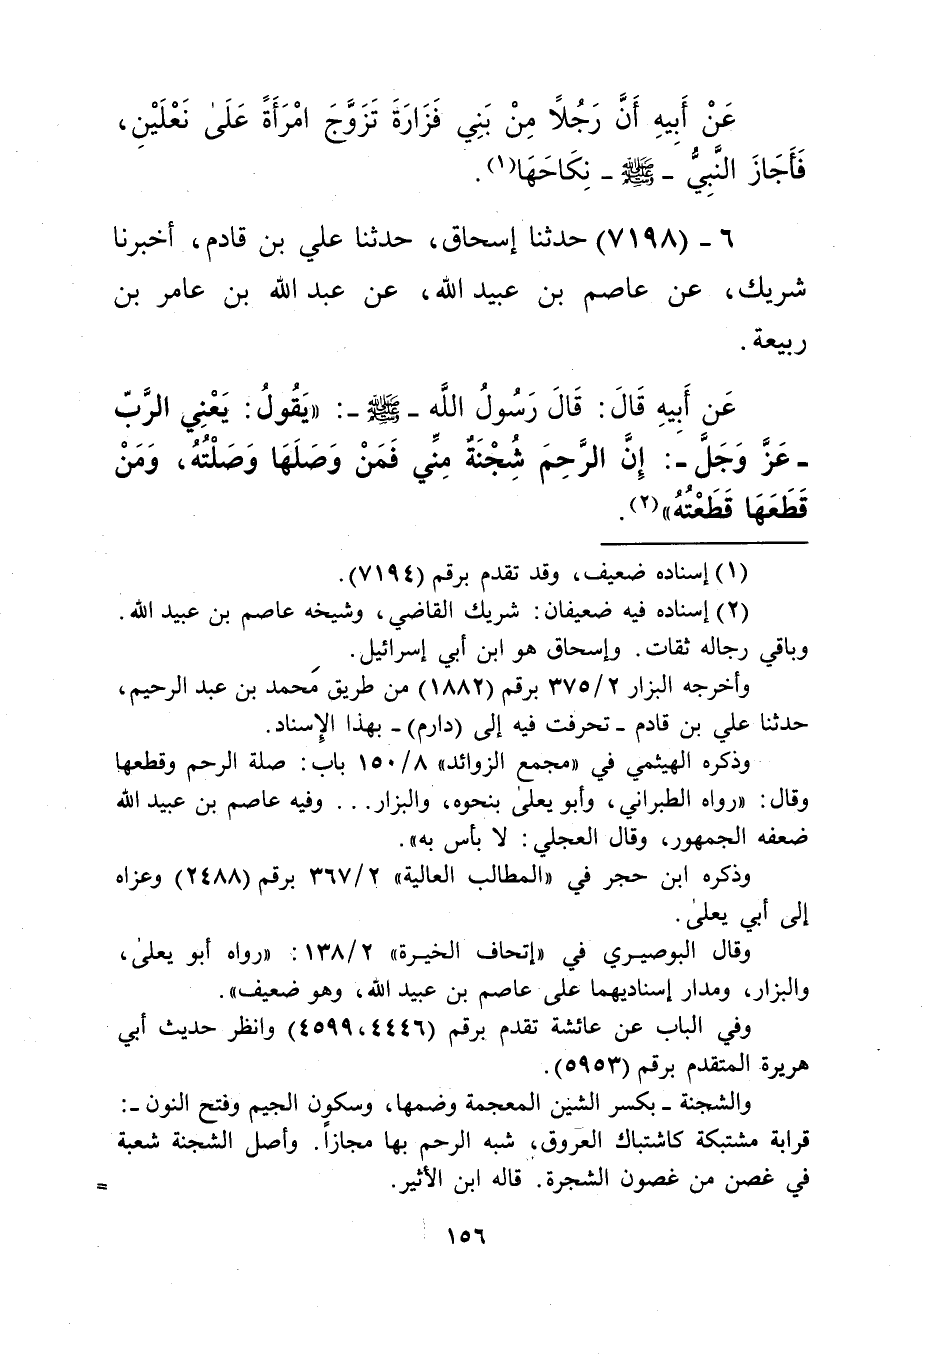 عَنْ أَبِيهِ أَنَّ رَجُلًا مِنْ بَنِي فَزَارَةَ تَزَوَّجَ امْرَأَةً عَلَىٰ نَعْلَيْنِ،
فَأَجَازَ النَّبِيُّ ـ ﷺ ـ نِكَاحَهَا(١).
٦ ـ (٧١٩٨) حدثنا إسحاق، حدثنا علي بن قادم، أخبرنا
شريك، عن عاصم بن عبيد الله، عن عبد الله بن عامر بن
ربيعة.
عَن أَبِيهِ قَالَ: قَالَ رَسُولُ اللَّه ـ ﷺ ـ: «يَقُولُ: يَعْنِي الرَّبّ
ـ عَزَّ وَجَلَّ ـ: إِنَّ الرَّحِمَ شُجْنَةٌ مِنِّي فَمَنْ وَصَلَهَا وَصَلْتُهُ، وَمَنْ
قَطَعَهَا قَطَعْتُهُ»(٢).
(١) إسناده ضعيف، وقد تقدم برقم (٧١٩٤).
(٢) إسناده فيه ضعيفان: شريك القاضي، وشيخه عاصم بن عبيد الله.
وباقي رجاله ثقات. وإسحاق هو ابن أبي إسرائيل.
وأخرجه البزار ٣٧٥/٢ برقم (١٨٨٢) من طريق محمد بن عبد الرحيم،
حدثنا علي بن قادم ـ تحرفت فيه إلى (دارم) ـ بهذا الإسناد.
وذكره الهيثمي في «مجمع الزوائد» ١٥٠/٨ باب: صلة الرحم وقطعها
وقال: «رواه الطبراني، وأبو يعلىٰ بنحوه، والبزار... وفيه عاصم بن عبيد الله
ضعفه الجمهور، وقال العجلي: لا بأس به».
وذكره ابن حجر في «المطالب العالية» ٣٦٧/٢ برقم (٢٤٨٨) وعزاه
إلى أبي يعلىٰ.
وقال البوصيري في «إتحاف الخيرة» ١٣٨/٢: «رواه أبو يعلىٰ،
والبزار، ومدار إسناديهما على عاصم بن عبيد الله، وهو ضعيف».
وفي الباب عن عائشة تقدم برقم (٤٤٤٦، ٤٥٩٩) وانظر حديث أبي
هريرة المتقدم برقم (٥٩٥٣).
والشجنة ـ بكسر الشين المعجمة وضمها، وسكون الجيم وفتح النون ـ:
قرابة مشتبكة كاشتباك العروق، شبه الرحم بها مجازاً. وأصل الشجنة شعبة
في غصن من غصون الشجرة. قاله ابن الأثير. =
١٥٦